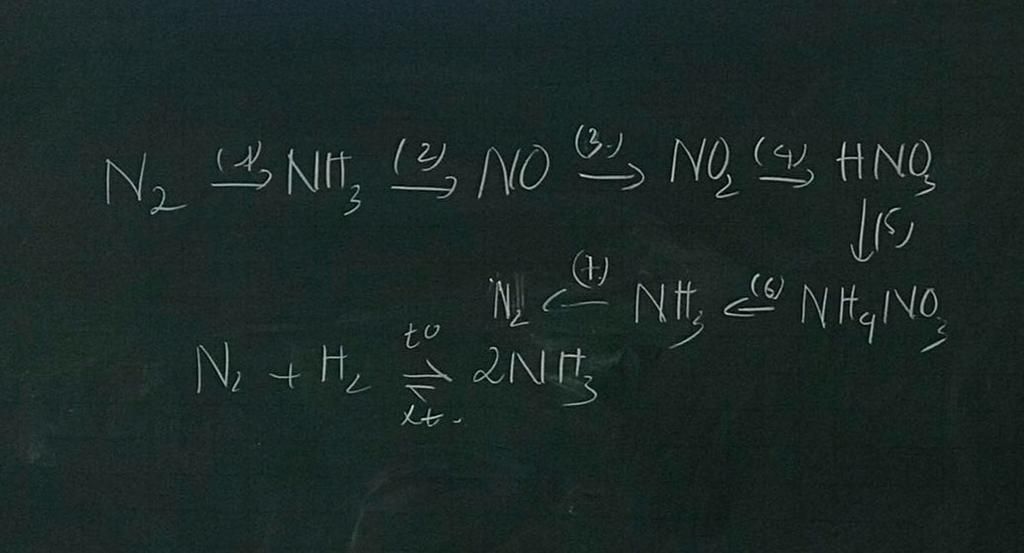 N₂ (1)→ NH₃ (2)→ NO (3.)→ NO₂ (4)→ HNO₃
↓(5)
N₂ ←(7.) NH₃ ←(6) NH₄NO₃
N₂ + H₂ t° ⇌ xt. 2NH₃